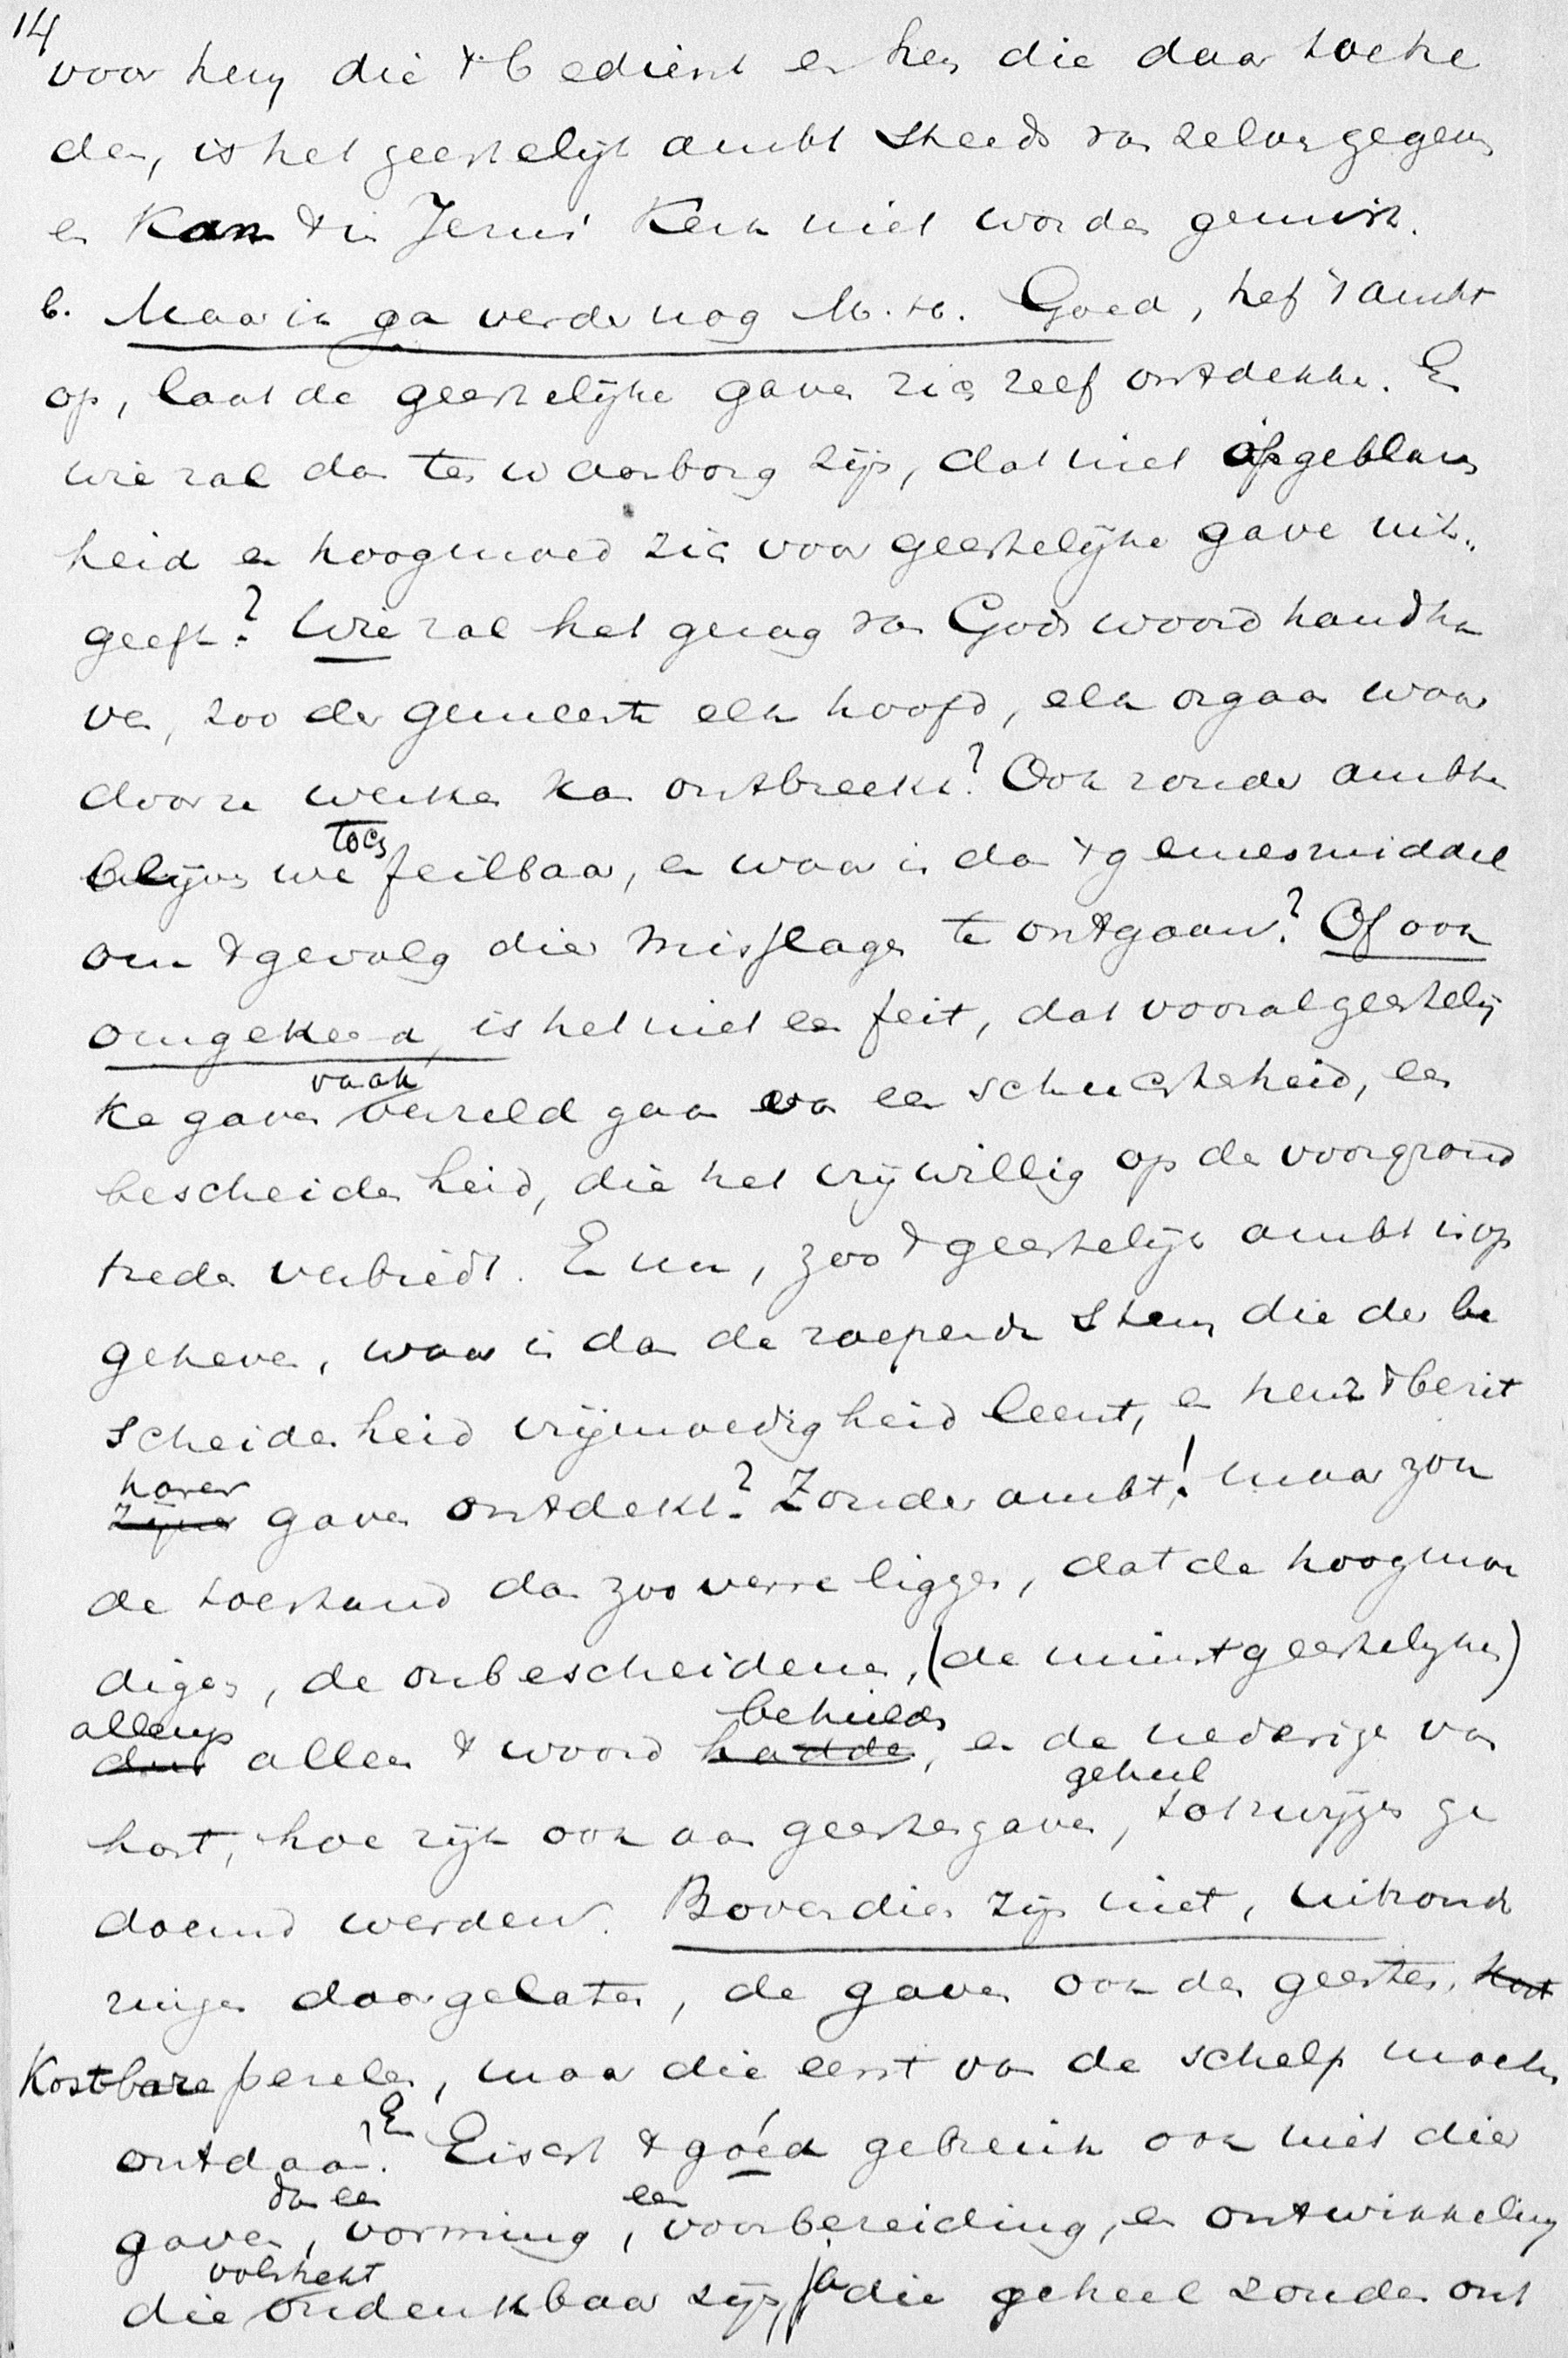 14
voor hem die 't bedient en hen die daar toetre
den, is het geestelijk ambt steeds van zelve gegeven
en kan 't in Jezus' Kerk niet worden gemist.
b. Maar ik ga verder nog M. H. Goed, hef 't ambt
op, laat de geestelijke gaven zich zelf ontdekken. En
wie zal dan ten waarborg zijn, dat niet opgeblazen
heid en hoogmoed zich voor geestelijke gave uit-
geeft? Wie zal het gezag van Gods woord handha
ven, zoo der gemeente elk hoofd, elk orgaan waar
door ze werken kan ontbreekt? Ook zonder ambten
blijven we toch feilbaar, en waar is dan 't geneesmiddel
om 't gevolg dier misslagen te ontgaan? Of ook
omgekeerd, is het niet een feit, dat vooral geestelij
ke gaven vaak verzeld gaan van een schuchterheid, een
bescheidenheid, die het vrijwillig op de voorgrond
treden verbiedt. En nu, zoo 't geestelijk ambt is op
geheven, waar is dan de roepende stem die der be
scheidenheid vrijmoedigheid leent, en heur 't bezit
zijner harer gaven ontdekt? Zonder ambt! maar zou
de toestand dan zoo verre liggen, dat de hoogmoe
digen, de onbescheidenen, (de minst geestelijken)
dus alleen 't woord hadde behielden, en de nederige van
hart, hoe rijk ook aan geestesgaven, geheel tot zwijgen ge
doemd werden. Bovendien zijn niet, uitzonde
ringen daargelaten, de gaven ook des geestes, kost
Kostbare perelen, maar die eerst van de schelp moeten
ontdaan. En Eischt 't goéd gebruik ook niet dier
gaven, dan een vorming, een voorbereiding, en ontwikkeling
die volstrekt ondenkbaar zijn, ja die geheel zonder ont